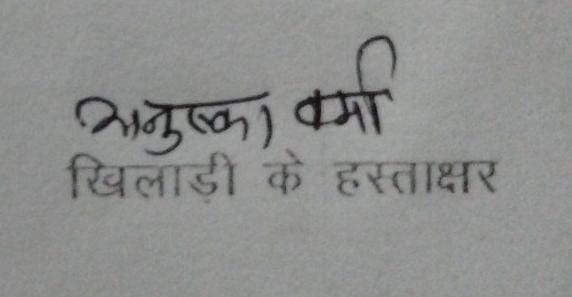 अनुष्का वर्मा
खिलाड़ी के हस्ताक्षर